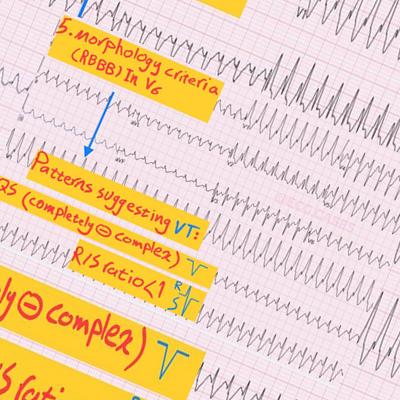 5. morphology criteria
(RBBB) In V6
Patterns suggesting VT:
QS (completely ⊖ complex)
R/S ratio<1 R
S
ly ⊖ complex)
S rati